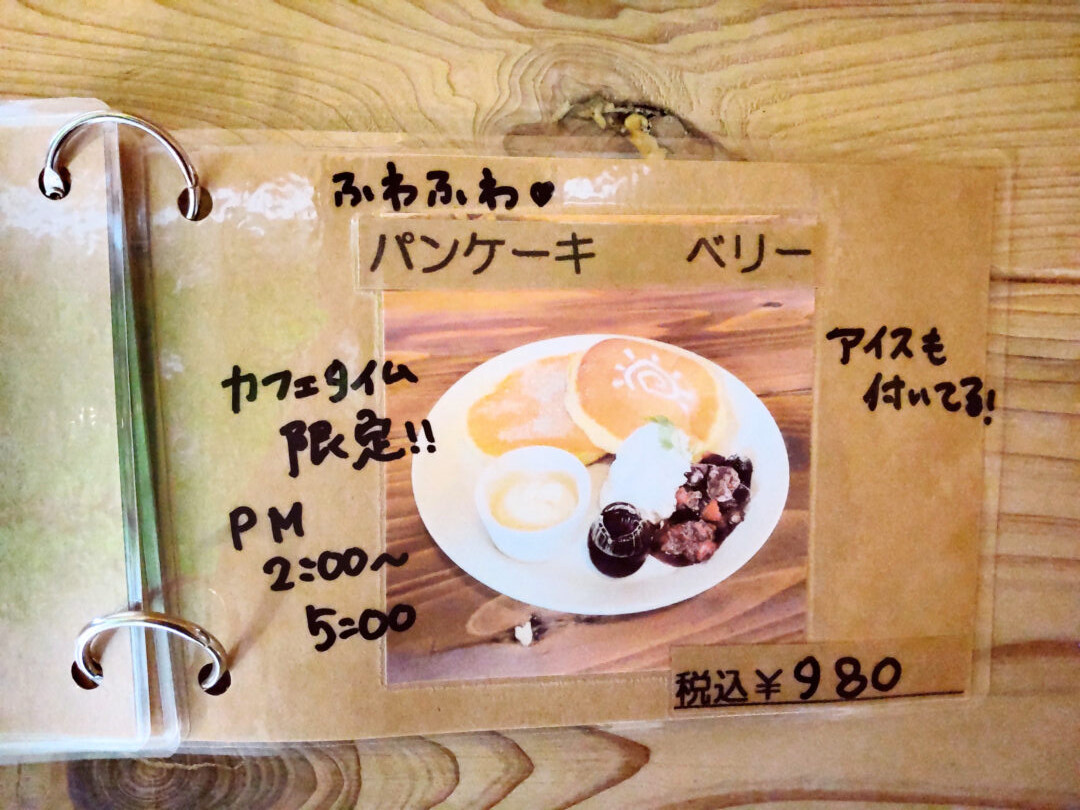 ふわふわ♥
パンケーキ ベリー
カフェタイム
限定!!
PM
2:00〜
5:00
アイスも
付いてる!
税込¥980